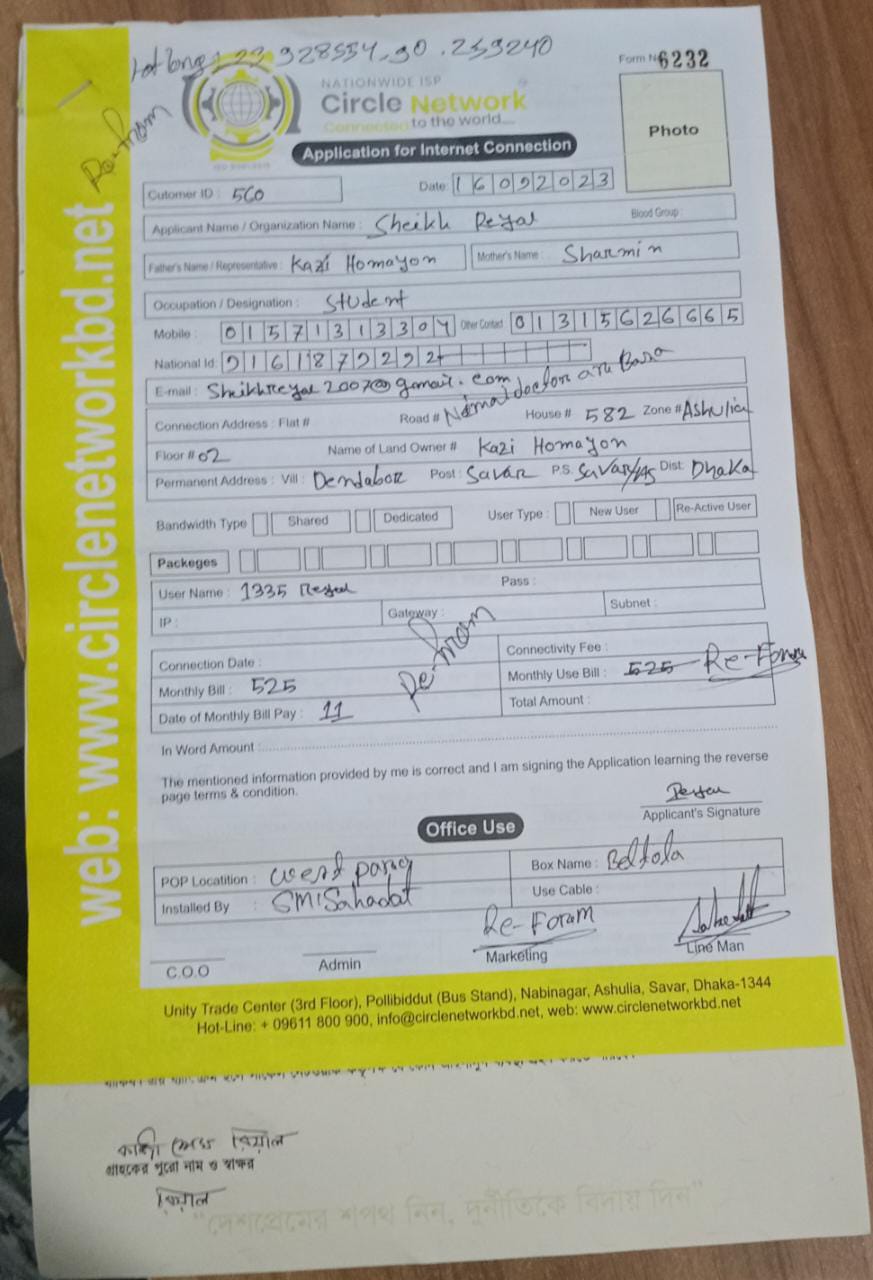 Lat long: 23.928554, 90.259240
Form No 6232
Re-from
NATIONWIDE ISP
Circle Network
Connected to the world...
Application for Internet Connection
Photo
Cutomer ID : 560
Date: 16092023
Applicant Name / Organization Name : Sheikh Reyal
Blood Group :
Father's Name / Representative : Kazi Homayon
Mother's Name : Sharmin
Occupation / Designation : Student
Mobile : 01571313304
Other Contact 01315626665
National Id: 9161879292
E-mail : Sheikhreyal2007@gmail.com
Connection Address : Flat #
Road #
House # 582 Zone # Ashulia
Floor # 02
Name of Land Owner # Kazi Homayon
Permanent Address : Vill : Dendabor Post : Savar P.S. Savar Dist: Dhaka
Bandwidth Type Shared Dedicated User Type : New User Re-Active User
Packeges
User Name : 1335 Reyal
Pass :
IP :
Gateway :
Subnet :
Re-from
Connection Date :
Connectivity Fee :
Monthly Bill : 525
Monthly Use Bill : 525 Re-Form
Date of Monthly Bill Pay : 11
Total Amount :
In Word Amount :
The mentioned information provided by me is correct and I am signing the Application learning the reverse
page terms & condition.
Applicant's Signature
Office Use
POP Locatition : west para
Box Name : Beltola
Installed By : SM/Sahadat
Use Cable :
Re-Foram
C.O.O
Admin
Marketing
Line Man
Unity Trade Center (3rd Floor), Pollibiddut (Bus Stand), Nabinagar, Ashulia, Savar, Dhaka-1344
Hot-Line: + 09611 800 900, info@circlenetworkbd.net, web: www.circlenetworkbd.net
web: www.circlenetworkbd.net
রিয়াল
গ্রাহকের পুরো নাম ও স্বাক্ষর
রিয়াল
"দেশপ্রেমের শপথ নিন, দুর্নীতিকে বিদায় দিন"